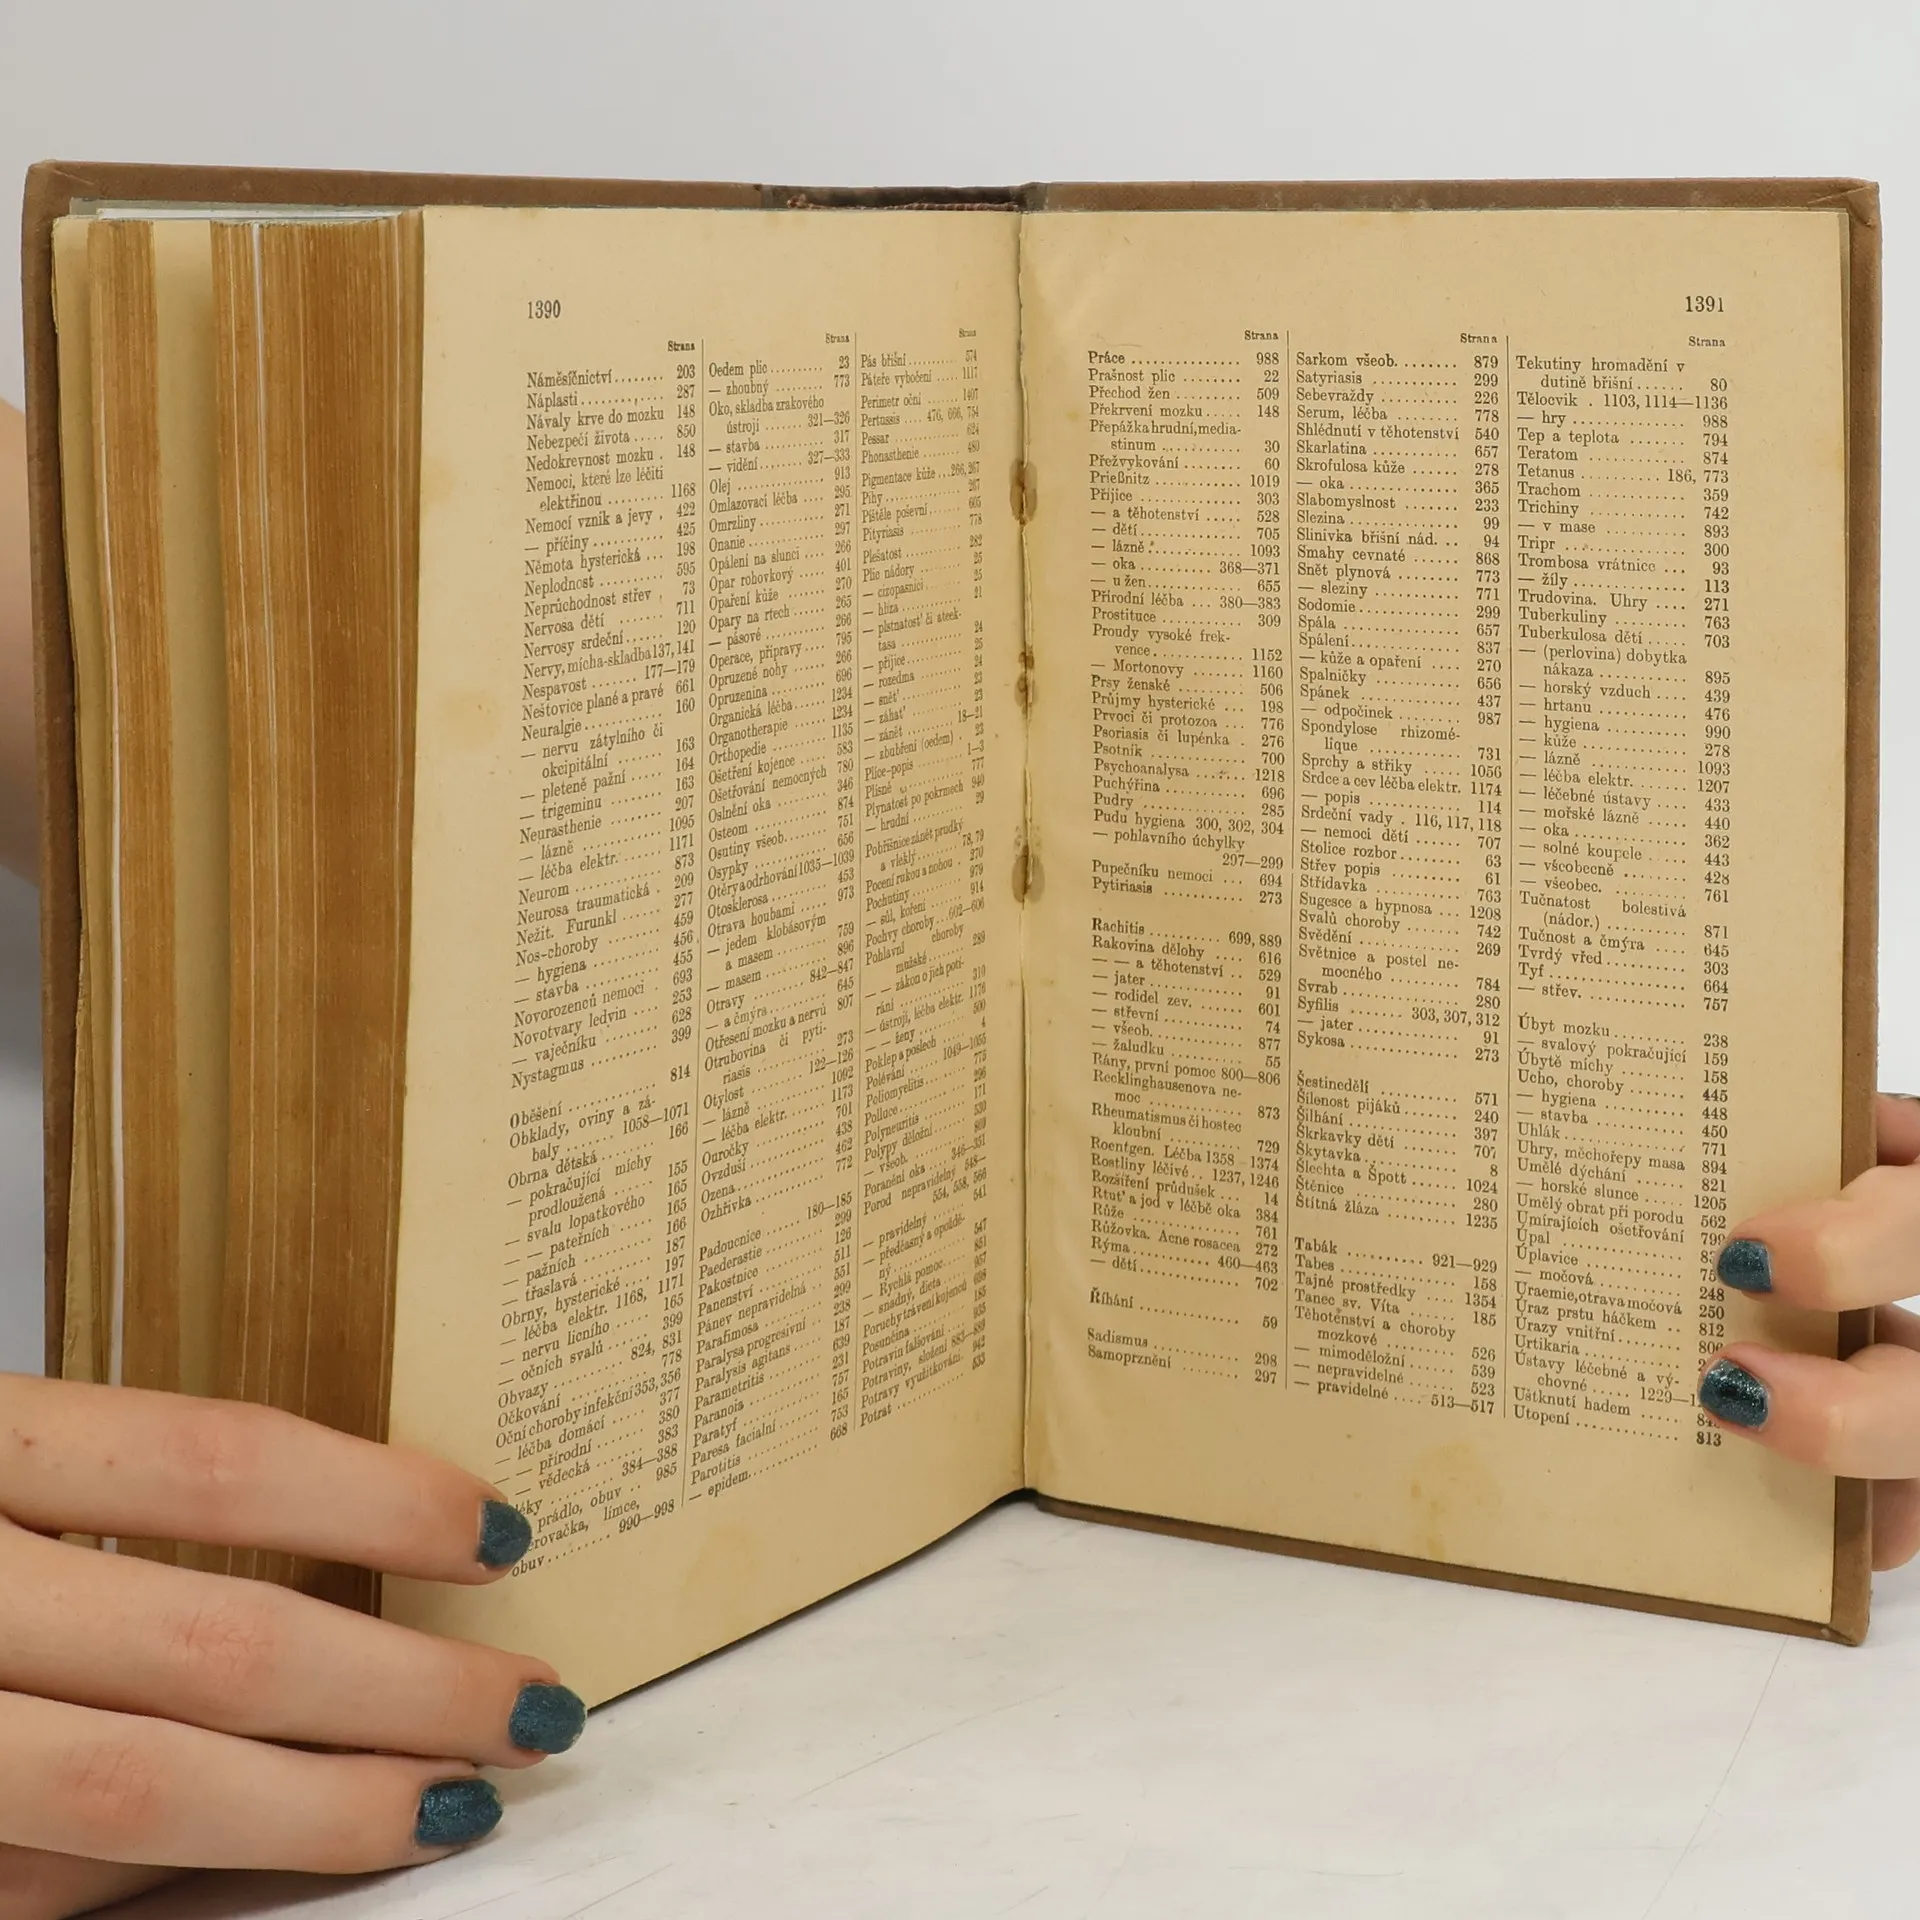 1390
Strana
Náměsíčnictví ........ 203
Náplasti ............. 287
Návaly krve do mozku 148
Nebezpečí života ..... 850
Nedokrevnost mozku . 148
Nemoci, které lze léčiti
elektřinou ......... 1168
Nemocí vznik a jevy . 422
— příčiny ............ 425
Němota hysterická ... 198
Neplodnost ........... 595
Neprůchodnost střev . 73
Nervosa dětí ......... 711
Nervosy srdeční ...... 120
Nervy, mícha-skladba 137, 141
Nespavost ....... 177—179
Neštovice plané a pravé 661
Neuralgie ............ 160
— nervu zátylního či
okcipitální ....... 163
— pleteně pažní ..... 164
— trigeminu ........ 163
Neurasthenie ......... 207
— lázně ............. 1095
— léčba elektr. ...... 1171
Neurom ............... 873
Neurosa traumatická . 209
Nežit. Furunkl ...... 277
Nos-choroby ........ 459
— hygiena .......... 456
— stavba ........... 455
Novorozenců nemoci . 693
Novotvary ledvin .... 253
— vaječníku ........ 628
Nystagmus .......... 399
Oběšení ............. 814
Obklady, oviny a zá-
baly ........ 1058—1071
Obrna dětská ....... 166
— pokračující míchy
prodloužená ...... 155
— svalu lopatkového 165
— — pateřních ..... 165
— pažních ......... 166
— třaslavá ......... 187
Obrny, hysterické .... 197
— léčba elektr. 1168, 1171
— nervu lícního ..... 165
— očních svalů ...... 399
Obvazy ......... 824, 831
Očkování ........... 778
Oční choroby infekční 353, 356
— léčba domácí ..... 377
— — přírodní ....... 380
— — vědecká ....... 383
léky ......... 384—388
prádlo, obuv .. 985
límce,
obuv ......... 990—998
Strana
Oedem plic .......... 23
— zhoubný ......... 773
Oko, skladba zrakového
ústrojí ....... 321—326
— stavba .......... 317
— vidění ....... 327—333
Olej ................ 913
Omlazovací léčba .... 295
Omrzliny ........... 271
Onanie ............. 297
Opálení na slunci ... 266
Opar rohovkový ..... 401
Opaření kůže ....... 270
Opary na rtech ..... 265
— pásové ........... 266
Operace, přípravy .... 795
Opruzené nohy ...... 266
Opruzenina ......... 696
Organická léčba ..... 1234
Organotherapie ..... 1234
Orthopedie ......... 1135
Ošetření kojence .... 583
Ošetřování nemocných 780
Oslnění oka ........ 346
Osteom ............. 874
Osutiny všeob. ...... 751
Osypky ............. 656
Otěry a odrhování 1035—1039
Otosklerosa ........ 453
Otrava houbami ..... 973
— jedem klobásovým
a masem ......... 759
— masem ........... 896
Otravy ......... 842—847
— a čmýra .......... 645
Otřesení mozku a nervů 807
Otrubovina či pyti-
riasis ............ 273
Otylost ......... 122—126
— lázně ........... 1092
— léčba elektr. ...... 1173
Ouročky ............ 701
Ovzduší ............ 438
Ozena .............. 462
Ozhřivka ........... 772
Padoucnice ...... 180—185
Paederastie ........ 299
Pakostnice ......... 126
Panenství .......... 511
Pánev nepravidelná .. 551
Parafimosa ......... 299
Paralysa progresivní .. 238
Paralysis agitans .... 187
Parametritis ....... 639
Paranoia ........... 231
Paratyf ............ 757
Paresa facialní ..... 165
Parotitis ........... 753
— epidem. .......... 668
Strana
Pás břišní .......... 574
Páteře vybočení .... 1117
Perimetr oční ...... 1407
Pertussis .... 476, 666, 754
Pessar ............. 624
Phonasthenie ....... 480
Pigmentace kůže .. 266, 267
Pihy ............... 267
Píštěle poševní ..... 605
Pityriasis .......... 778
Plešatost ........... 282
Plic nádory ........ 25
— cizopasníci ...... 25
— hlíza ............ 21
— plstnatosť či atelek-
tasa ............. 24
— příjice ........... 25
— rozedma ......... 24
— sněť ............. 23
— záhať ............ 23
— zánět ......... 18—21
— zbubření (oedem) . 23
Plíce-popis ....... 1—3
Plísně ............. 777
Plynatost po pokrmech 940
— hrudní ........... 29
Pobřišnice zánět prudký
a vleklý ....... 78, 79
Pocení rukou a nohou . 270
Pochutiny .......... 979
— sůl, koření ...... 914
Pochvy choroby ... 602—606
Pohlavní choroby
mužské .......... 289
— — zákon o jich potí-
rání ............. 310
— ústrojí, léčba elektr. 1176
— — ženy .......... 500
Poklep a poslech ... 4
Polévání ....... 1049—1055
Poliomyelitis ....... 775
Polluce ............ 296
Polyneuritis ........ 171
Polypy děložní ..... 530
— všeob. ........... 869
Poranění oka .... 346—351
Porod nepravidelný 548—
554, 558, 566
— pravidelný ....... 541
— předčasný a opoždě-
ný ............... 547
— Rychlá pomoc .... 851
— snadný, dieta .... 957
Poruchy trávení kojenců 698
Posunčina .......... 185
Potravin falšování .. 935
Potraviny, složení 883—889
Potravy využitkování . 942
Potrat ............. 533
1391
Strana
Práce ............... 988
Prašnost plic ........ 22
Přechod žen ......... 509
Překrvení mozku ..... 148
Přepážka hrudní, media-
stinum ............ 30
Přežvykování ........ 60
Prießnitz ............ 1019
Příjice .............. 303
— a těhotenství ..... 528
— dětí .............. 705
— lázně ............. 1093
— oka ........ 368—371
— u žen ............. 655
Přírodní léčba ... 380—383
Prostituce .......... 309
Proudy vysoké frek-
vence ............. 1152
— Mortonovy ....... 1160
Prsy ženské ......... 506
Průjmy hysterické ... 198
Prvoci či protozoa ... 776
Psoriasis či lupénka . 276
Psotník ............. 700
Psychoanalysa ....... 1218
Puchýřina ........... 696
Pudry .............. 285
Pudu hygiena 300, 302, 304
— pohlavního úchylky
297—299
Pupečníku nemoci ... 694
Pytiriasis ........... 273
Rachitis ......... 699, 889
Rakovina dělohy .... 616
— — a těhotenství .. 529
— jater ............. 91
— rodidel zev. ...... 601
— střevní ........... 74
— všeob. ............ 877
— žaludku .......... 55
Rány, první pomoc 800—806
Recklinghausenova ne-
moc .............. 873
Rheumatismus či hostec
kloubní ........... 729
Roentgen. Léčba 1358—1374
Rostliny léčivé .. 1237, 1246
Rozšíření průdušek ... 14
Rtuť a jod v léčbě oka 384
Růže ............... 761
Růžovka. Acne rosacea 272
Rýma .......... 460—463
— dětí .............. 702
Říhání .............. 59
Sadismus ............ 298
Samoprznění ......... 297
Strana
Sarkom všeob. ........ 879
Satyriasis ........... 299
Sebevraždy .......... 226
Serum, léčba ........ 778
Shlédnutí v těhotenství 540
Skarlatina ........... 657
Skrofulosa kůže ..... 278
— oka .............. 365
Slabomyslnost ....... 233
Slezina ............. 99
Slinivka břišní nád. .. 94
Smahy cevnaté ...... 868
Snět plynová ........ 773
— sleziny ........... 771
Sodomie ............. 299
Spála ............... 657
Spálení ............. 837
— kůže a opaření .... 270
Spalničky ........... 656
Spánek ............. 437
— odpočinek ........ 987
Spondylose rhizomé-
lique ............. 731
Sprchy a střiky ..... 1056
Srdce a cev léčba elektr. 1174
— popis ............ 114
Srdeční vady . 116, 117, 118
— nemoci dětí ...... 707
Stolice rozbor ....... 63
Střev popis ......... 61
Střídavka ........... 763
Sugesce a hypnosa ... 1208
Svalů choroby ....... 742
Svědění ............. 269
Světnice a postel ne-
mocného .......... 784
Svrab ............... 280
Syfilis ....... 303, 307, 312
— jater ............. 91
Sykosa .............. 273
Šestinedělí ........... 571
Šílenost pijáků ....... 240
Šilhání .............. 397
Škrkavky dětí ....... 707
Škytavka ............ 8
Šlechta a Špott ...... 1024
Štěnice ............. 280
Štítná žláza ......... 1235
Tabák ......... 921—929
Tabes ............... 158
Tajné prostředky .... 1354
Tanec sv. Víta ....... 185
Těhotenství a choroby
mozkové .......... 526
— mimoděložní ...... 539
— nepravidelné ...... 523
— pravidelné .... 513—517
Strana
Tekutiny hromadění v
dutině břišní ...... 80
Tělocvik . 1103, 1114—1136
— hry .............. 988
Tep a teplota ....... 794
Teratom ............ 874
Tetanus ......... 186, 773
Trachom ............ 359
Trichiny ............ 742
— v mase ........... 893
Tripr ............... 300
Trombosa vrátnice ... 93
— žíly .............. 113
Trudovina. Uhry .... 271
Tuberkuliny ......... 763
Tuberkulosa dětí ..... 703
— (perlovina) dobytka
nákaza ............ 895
— horský vzduch .... 439
— hrtanu ........... 476
— hygiena .......... 990
— kůže ............. 278
— lázně ............. 1093
— léčba elektr. ...... 1207
— léčebné ústavy .... 433
— mořské lázně ..... 440
— oka .............. 362
— solné koupele ..... 443
— všeobecně ........ 428
— všeobec. ......... 761
Tučnatost bolestivá
(nádor.) ........... 871
Tučnost a čmýra .... 645
Tvrdý vřed .......... 303
Tyf ................ 664
— střev. ............ 757
Úbyt mozku ......... 238
— svalový pokračující 159
Úbytě míchy ........ 158
Ucho, choroby ....... 445
— hygiena .......... 448
— stavba ........... 450
Uhlák .............. 771
Uhry, měchořepy masa 894
Umělé dýchání ...... 821
— horské slunce ..... 1205
Umělý obrat při porodu 562
Umírajících ošetřování 799
Úpal ...............
Úplavice ............
— močová .......... 248
Uraemie, otrava močová 250
Úraz prstu háčkem .. 812
Úrazy vnitřní ........
Urtikaria ............
Ústavy léčebné a vý-
chovné .....
Uštknutí hadem .....
Utopení ............. 813